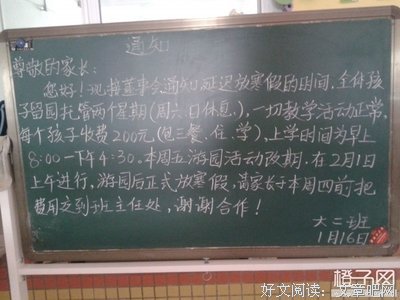 通知
尊敬的家长：
您好！现接董事会通知延迟放寒假的时间，全体孩
子留园托管两个星期（周六.日休息.），一切教学活动正常，
每个孩子收费200元（包三餐.住.学），上学时间为早上
8:00一下午4:30.本周五游园活动改期，在2月1日
上午进行，游园后正式放寒假，请家长于本周四前把
费用交到班主任处，谢谢合作！
大二班
1月16日
橙子网
好文阅读：文章吧网